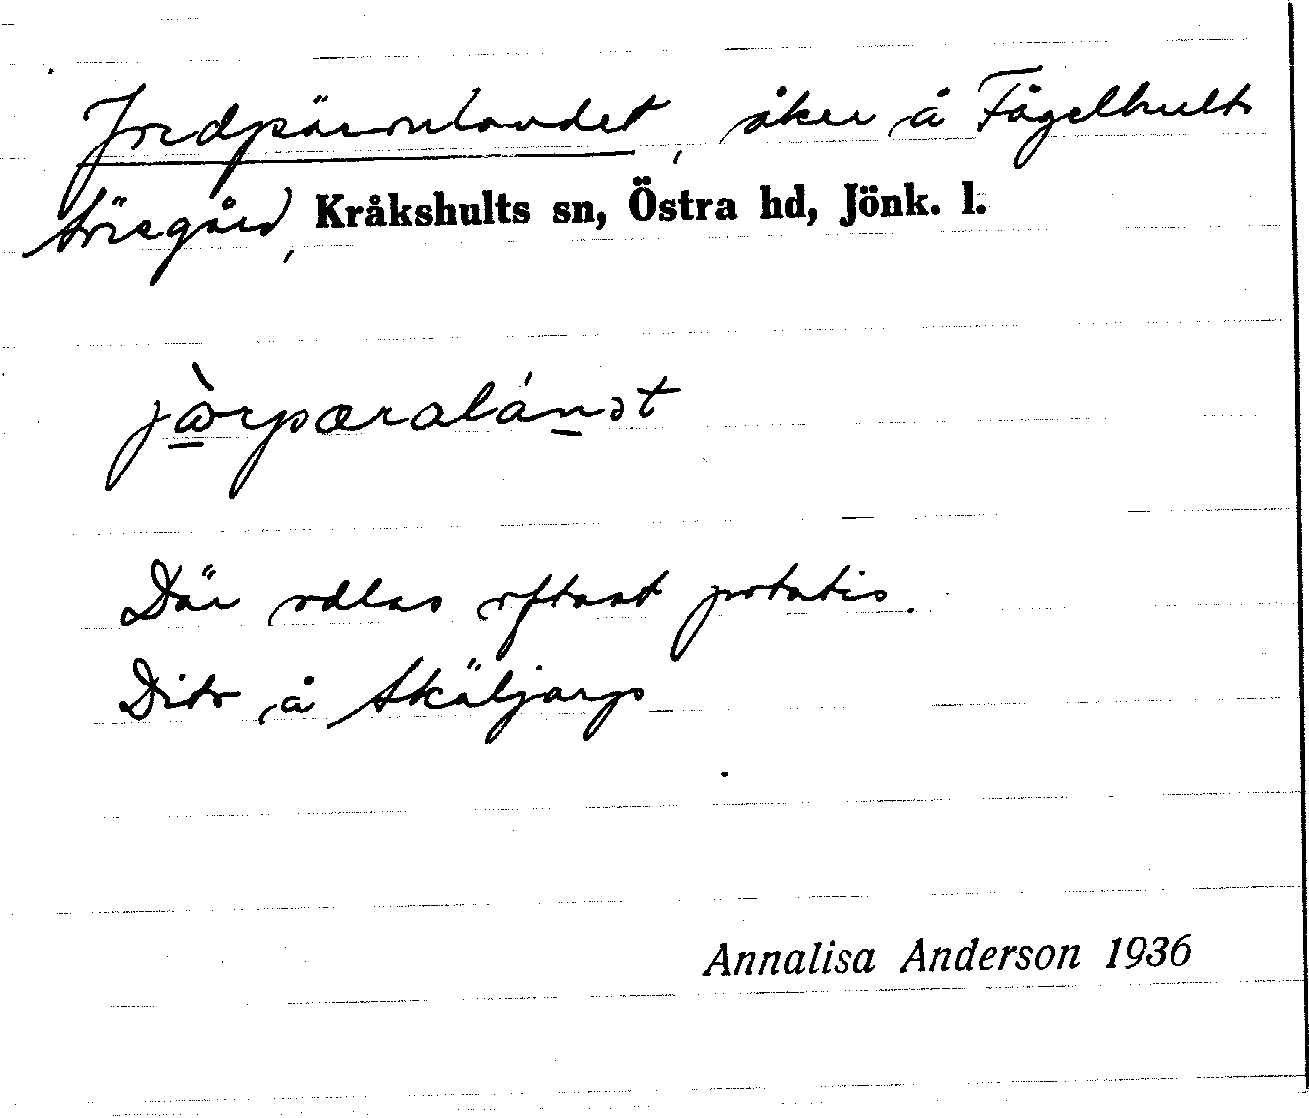 Jordpäronlandet, åker å Fågelhult
Söregård, Kråkshults sn, Östra hd, Jönk. l.
jœ̀rpæralánət
Där odlas oftast potatis.
Dito å Skäljarp
Annalisa Anderson 1936